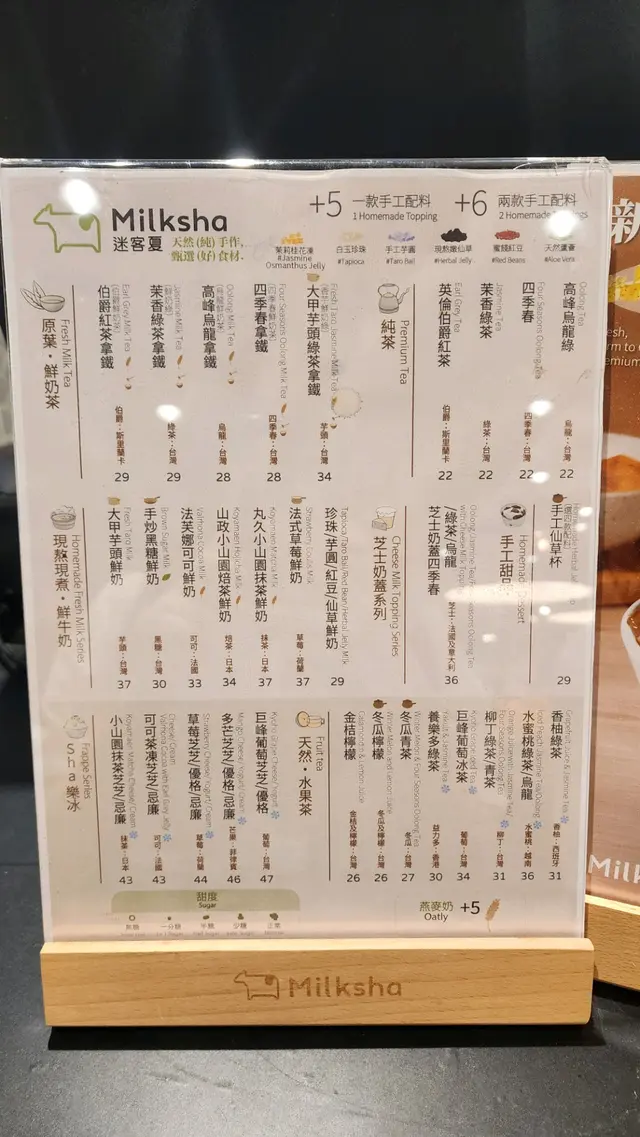 Milksha
迷客夏
天然(純)手作,
甄選(好)食材.
+5 一款手工配料
1 Homemade Topping
+6 兩款手工配料
2 Homemade
茉莉桂花凍
#Jasmine
Osmanthus Jelly
白玉珍珠
#Tapioca
手工芋圓
#Taro Ball
現熬嫩仙草
#Herbal Jelly
蜜餞紅豆
#Red Beans
天然蘆薈
#Aloe Vera
Fresh Milk Tea
原葉・鮮奶茶
Earl Grey Milk Tea
伯爵紅茶拿鐵
伯爵:斯里蘭卡
29
Jasmine Milk Tea
茉香綠茶拿鐵
綠茶:台灣
29
Oolong Milk Tea
高峰烏龍拿鐵
烏龍:台灣
28
Four Seasons Oolong Milk Tea
四季春拿鐵
四季春:台灣
28
Fresh Taro Jasmine Milk Tea
大甲芋頭綠茶拿鐵
芋頭:台灣
34
Premium Tea
純茶
Earl Grey Tea
英倫伯爵紅茶
伯爵:斯里蘭卡
22
Jasmine Tea
茉香綠茶
綠茶:台灣
22
Four Seasons Oolong Tea
四季春
四季春:台灣
22
Oolong Tea
高峰烏龍綠
烏龍:台灣
22
Homemade Fresh Milk Series
現熬現煮・鮮牛奶
Fresh Taro Milk
大甲芋頭鮮奶
芋頭:台灣
37
Brown Sugar Milk
手炒黑糖鮮奶
黑糖:台灣
30
Valrhona Cocoa Milk
法芙娜可可鮮奶
可可:法國
33
Koyamaen Hojicha Milk
山政小山園焙茶鮮奶
焙茶:日本
34
Koyamaen Matcha Milk
丸久小山園抹茶鮮奶
抹茶:日本
37
Strawberry Coulis Milk
法式草莓鮮奶
草莓:荷蘭
37
Tapioca/Taro Ball/Red Bean/Herbal Jelly Milk
珍珠/芋圓/紅豆/仙草鮮奶
29
Cheese Milk Topping Series
芝士奶蓋系列
芝士奶蓋四季春
/綠茶/烏龍
芝士:法國及意大利
36
Homemade Dessert
手工甜品
手工仙草杯
29
Frappe Series
Sha樂冰
Koyamaen Matcha Cheese/Cream
小山園抹茶芝芝/忌廉
抹茶:日本
43
可可茶凍芝芝/忌廉
可可:法國
43
Strawberry Cheese/Yogurt/Cream
草莓芝芝/優格/忌廉
草莓:荷蘭
44
Mango Cheese/Yogurt/Cream
多芒芝芝/優格/忌廉
芒果:菲律賓
46
Kyoho Grape Cheese/Yogurt
巨峰葡萄芝芝/優格
葡萄:台灣
47
Fruit tea
天然・水果茶
Calamansi & Lemon Juice
金桔檸檬
金桔及檸檬:台灣
26
Winter Melon and Lemon Juice
冬瓜檸檬
冬瓜及檸檬:台灣
26
Winter Melon & Four Seasons Oolong Tea
冬瓜青茶
冬瓜:台灣
27
Yakult & Jasmine Tea
養樂多綠茶
益力多:香港
30
巨峰葡萄冰茶
葡萄:台灣
34
柳丁綠茶/青茶
柳丁:台灣
31
Iced Peach Jasmine Tea/Oolong
水蜜桃綠茶/烏龍
水蜜桃:越南
36
Grapefruit Juice & Jasmine Tea
香柚綠茶
香柚:西班牙
31
甜度
Sugar
無糖
一分糖
半糖
少糖
正常
燕麥奶 +5
Oatly
Milksha
新